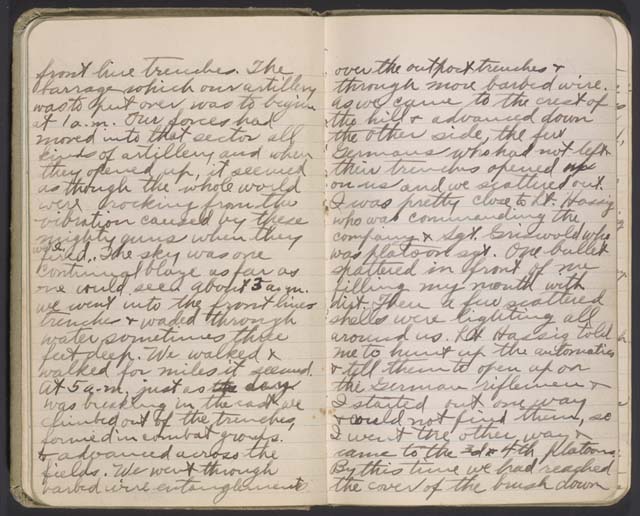 front line trenches. The
barrage which our artillery
was to put over was to begin
at 1 a.m. Our forces had
moved into that sector all
kinds of artillery and when
they opened up, it seemed
as though the whole world
were rocking from the
vibration caused by these
mighty guns when they
were fired. The sky was one
continual blaze as far as
one could see. about 3 a.m.
we went into the front lines
trenches & waded through
water sometimes three
feet deep. We walked &
walked for miles it seemed.
At 5 a.m. just as the day
was breaking in the east we
climbed out of the trenches,
formed in combat groups.
& advanced across the
fields. We went through
barbed wire entanglements
over the outpost trenches &
through more barbed wire.
as we came to the crest of
the hill & advanced down
the other side, the few
Germans who had not left
their trenches opened up
on us and we scattered out.
I was pretty close to Lt. Hassig
who was commanding the
company & Sgt. Griswold who
was platoon sgt. One bullet
spattered in front of me
filling my mouth with
dirt. Then a few scattered
shells were lighting all
around us. Lt Hassig told
me to hunt up the automatics
& tell them to open up on
the German riflemen &
I started out one way
& could not find them, so
I went the other way &
came to the 3d & 4th platoons.
By this time we had reached
the cover of the brush down